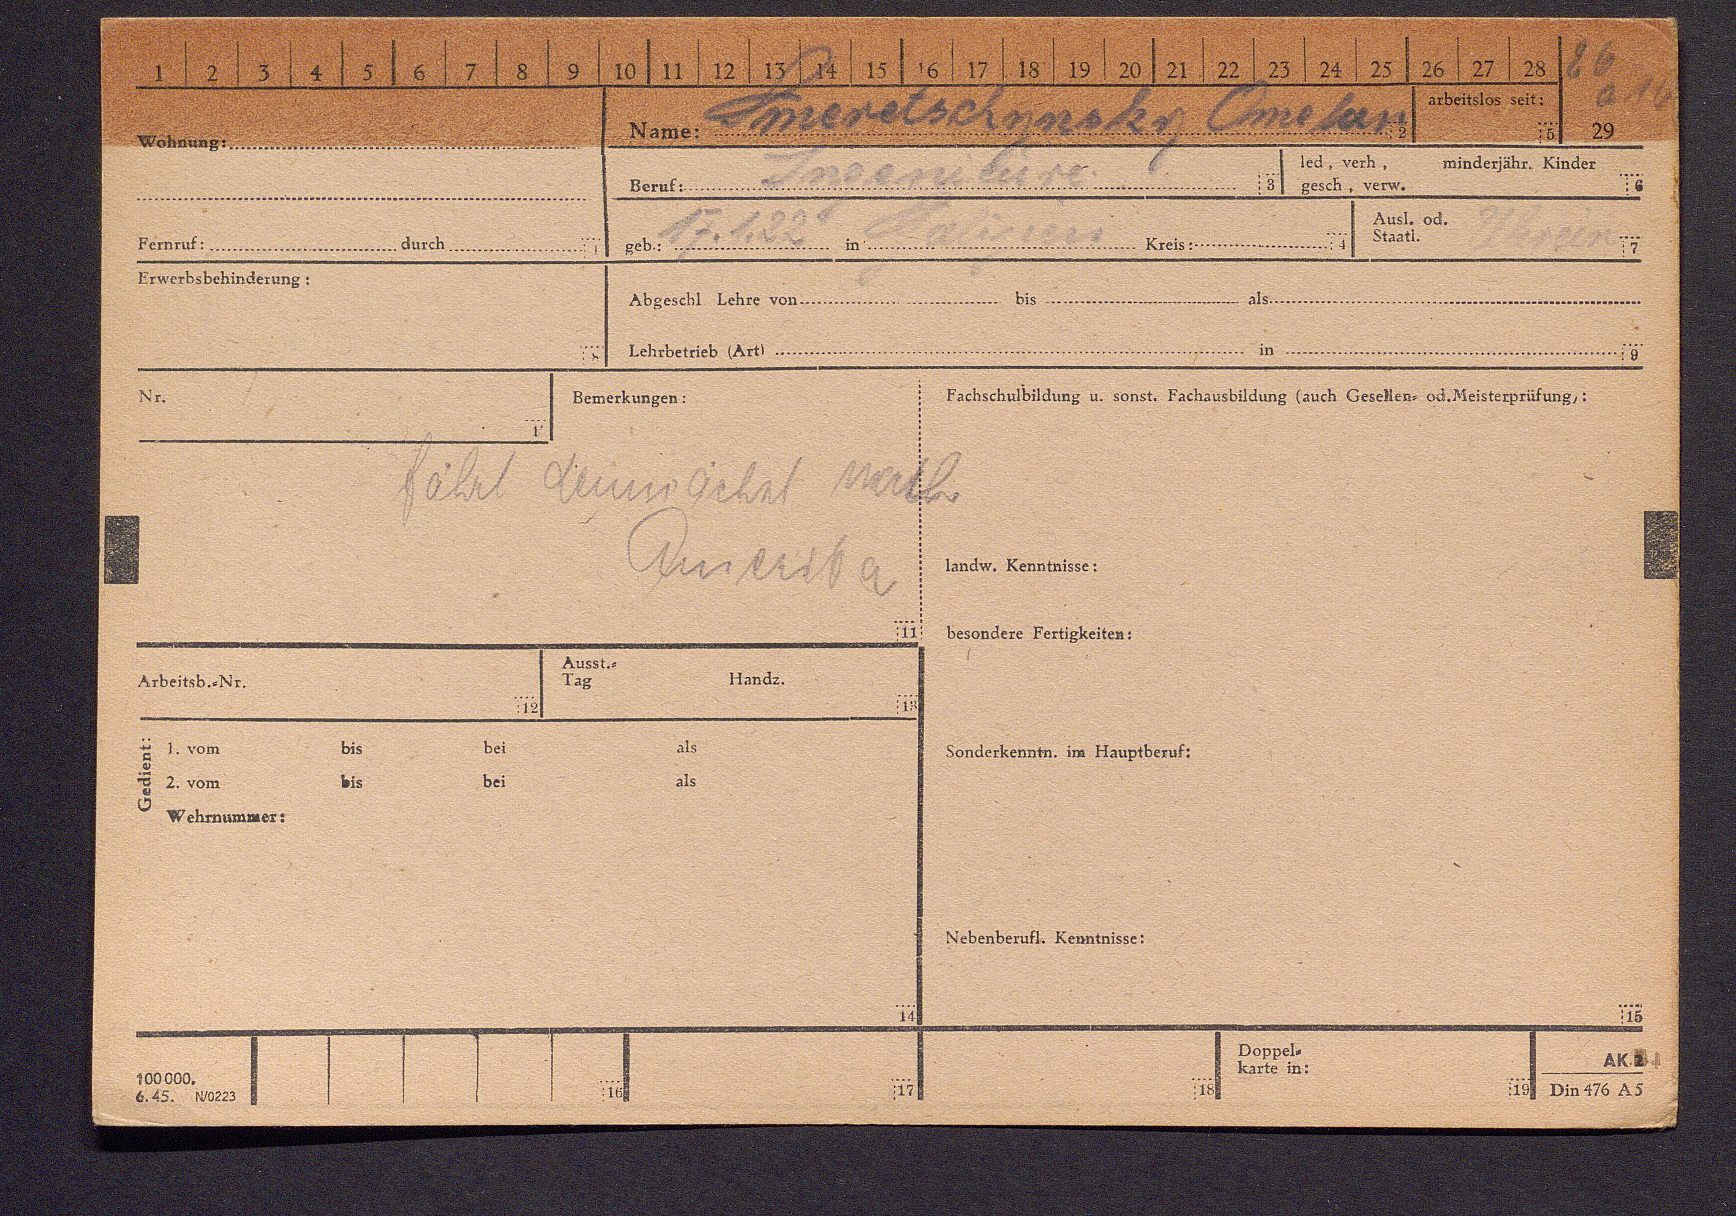 1 2 3 4 5 6 7 8 9 10 11 12 13 14 15 16 17 18 19 20 21 22 23 24 25 26 27 28 86
a 16
29
Wohnung:
Name: Smeretschynsky Omelan 2
arbeitslos seit: 5
Beruf: Ingenieure 3
led, verh, minderjähr. Kinder
gesch, verw. 6
Fernruf: durch 1
geb.: 17.1.22 in Galizien Kreis: 4
Ausl. od.
Staatl. 7
Erwerbsbehinderung: 8
Abgeschl Lehre von bis als
Lehrbetrieb (Art) in 9
Nr.
Bemerkungen:
fährt demnächst nach
Amerika
11
Fachschulbildung u. sonst. Fachausbildung (auch Gesellen- od. Meisterprüfung):
landw. Kenntnisse:
besondere Fertigkeiten:
Sonderkenntn. im Hauptberuf:
Nebenberufl. Kenntnisse:
15
Arbeitsb.-Nr. 12
Ausst.-
Tag Handz. 13
Gedient:
1. vom bis bei als
2. vom bis bei als
Wehrnummer:
14
100 000.
6.45. N/0223
16
17
18
Doppel-
karte in: 19
AK 2
Din 476 A5